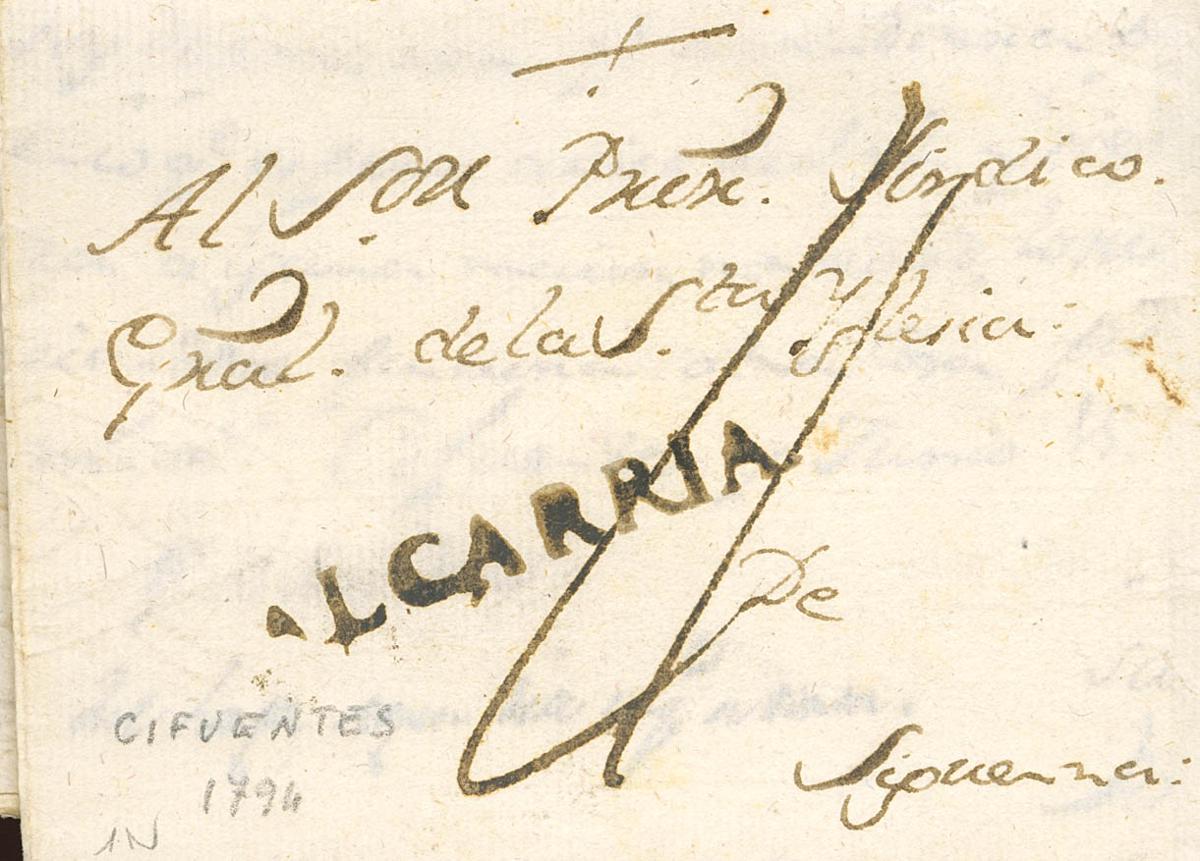 Al S.or Prror. Sindico.
Gral. de la S.ta Yglesia:
ALCARRIA
De
CIFUENTES
Siguenza:
1794
1N